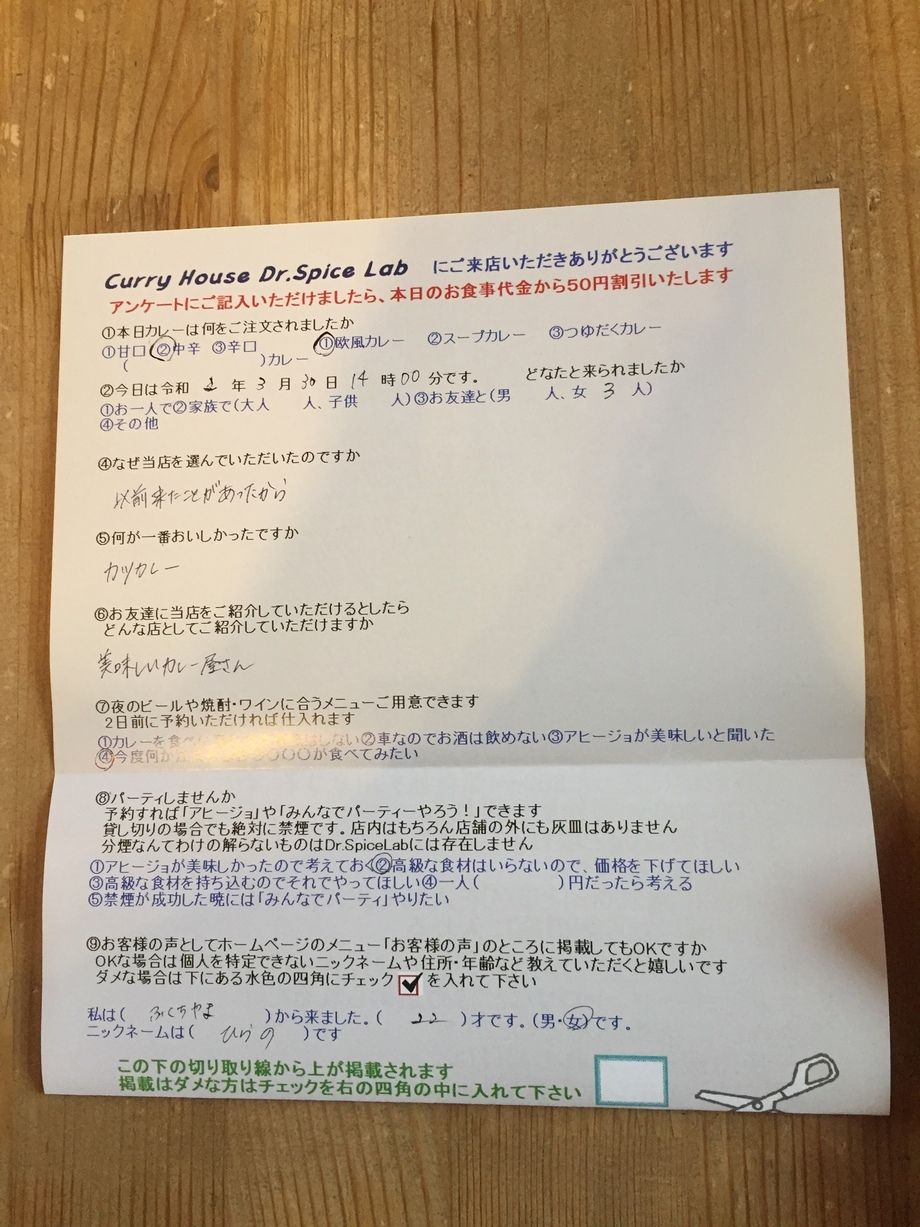 Curry House Dr.Spice Lab にご来店いただきありがとうございます
アンケートにご記入いただけましたら、本日のお食事代金から50円割引いたします
①本日カレーは何をご注文されましたか
①甘口 ②中辛 ③辛口 ①欧風カレー ②スープカレー ③つゆだくカレー
( )カレー
②今日は令和 2 年 3 月 30 日 14 時 00 分です。 どなたと来られましたか
①お一人で②家族で(大人 人、子供 人)③お友達と(男 人、女 3 人)
④その他
④なぜ当店を選んでいただいたのですか
以前来たことがあったから
⑤何が一番おいしかったですか
カツカレー
⑥お友達に当店をご紹介していただけるとしたら
どんな店としてご紹介していただけますか
美味しいカレー屋さん
⑦夜のビールや焼酎・ワインに合うメニューご用意できます
2日前に予約いただければ仕入れます
①カレーを食べに しない②車なのでお酒は飲めない③アヒージョが美味しいと聞いた
④今度何か 〇〇〇〇が食べてみたい
⑧パーティしませんか
予約すれば「アヒージョ」や「みんなでパーティーやろう！」できます
貸し切りの場合でも絶対に禁煙です。店内はもちろん店舗の外にも灰皿はありません
分煙なんてわけの解らないものはDr.SpiceLabには存在しません
①アヒージョが美味しかったので考えておく②高級な食材はいらないので、価格を下げてほしい
③高級な食材を持ち込むのでそれでやってほしい④一人( )円だったら考える
⑤禁煙が成功した暁には「みんなでパーティ」やりたい
⑨お客様の声としてホームページのメニュー「お客様の声」のところに掲載してもOKですか
OKな場合は個人を特定できないニックネームや住所・年齢など教えていただくと嬉しいです
ダメな場合は下にある水色の四角にチェック を入れて下さい
私は( ふくちやま )から来ました。( 22 )才です。(男・女)です。
ニックネームは( ひらの )です
この下の切り取り線から上が掲載されます
掲載はダメな方はチェックを右の四角の中に入れて下さい